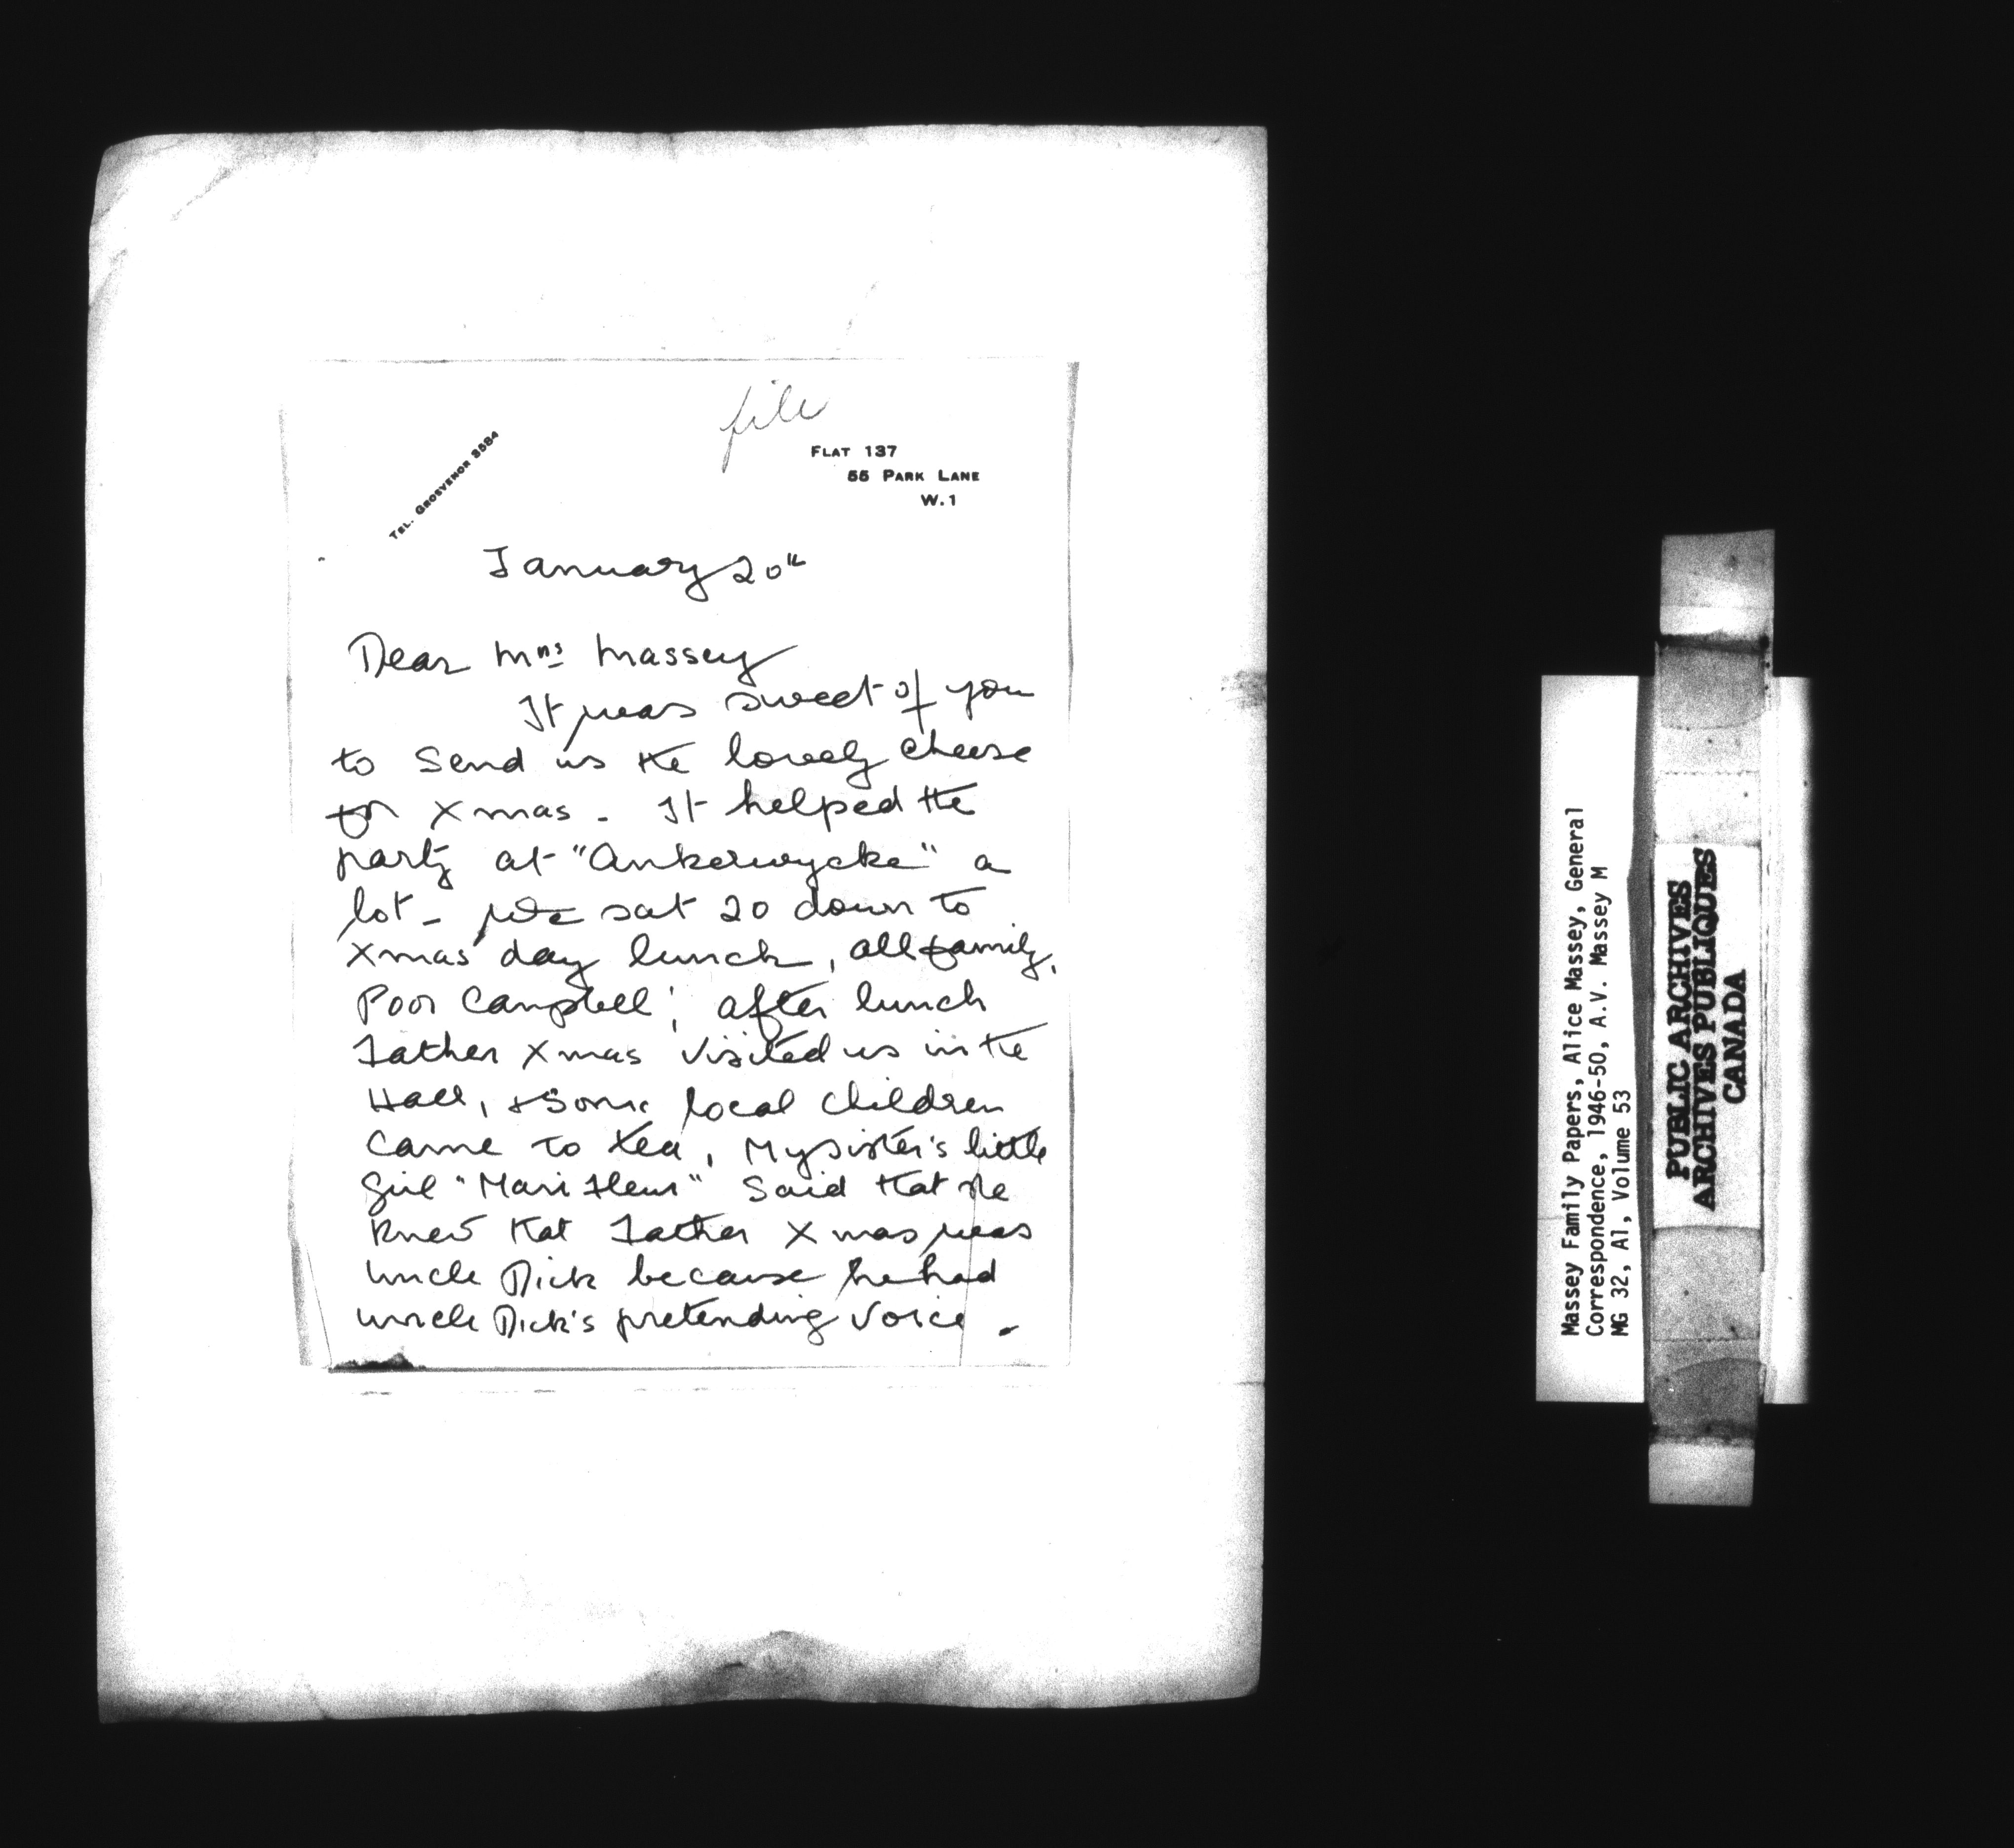 file
TEL. GROSVENOR 3584
FLAT 137
55 PARK LANE
W.1
January 20th
Dear Mrs Massey
It was sweet of you
to send us the lovely cheese
for Xmas - It helped the
party at "Ankerwycke" a
lot - We sat 20 down to
Xmas day lunch, all family,
Poor Campbell! after lunch
Father Xmas visited us in the
Hall, & some local children
came to tea, My sister's little
girl "Mari Fleur" said that she
knew that Father Xmas was
Uncle Dick because he had
Uncle Dick's pretending voice.
Massey Family Papers, Alice Massey, General
Correspondence, 1946-50, A.V. Massey M
MG 32, A1, Volume 53
PUBLIC ARCHIVES
ARCHIVES PUBLIQUES
CANADA